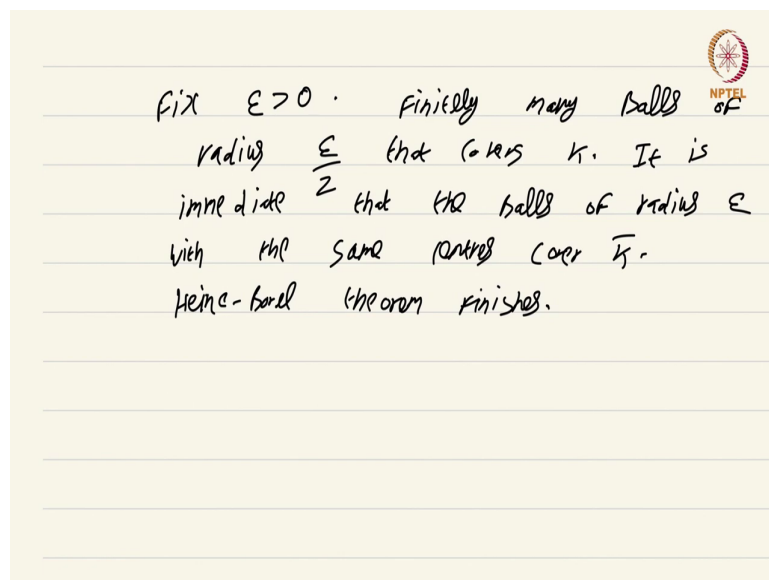 NPTEL
Fix ε > 0 . Finitely many Balls of
radius ε/2 that covers K. It is
immediate that the Balls of radius ε
with the same centres cover K̅.
Heine-Borel theorem finishes.